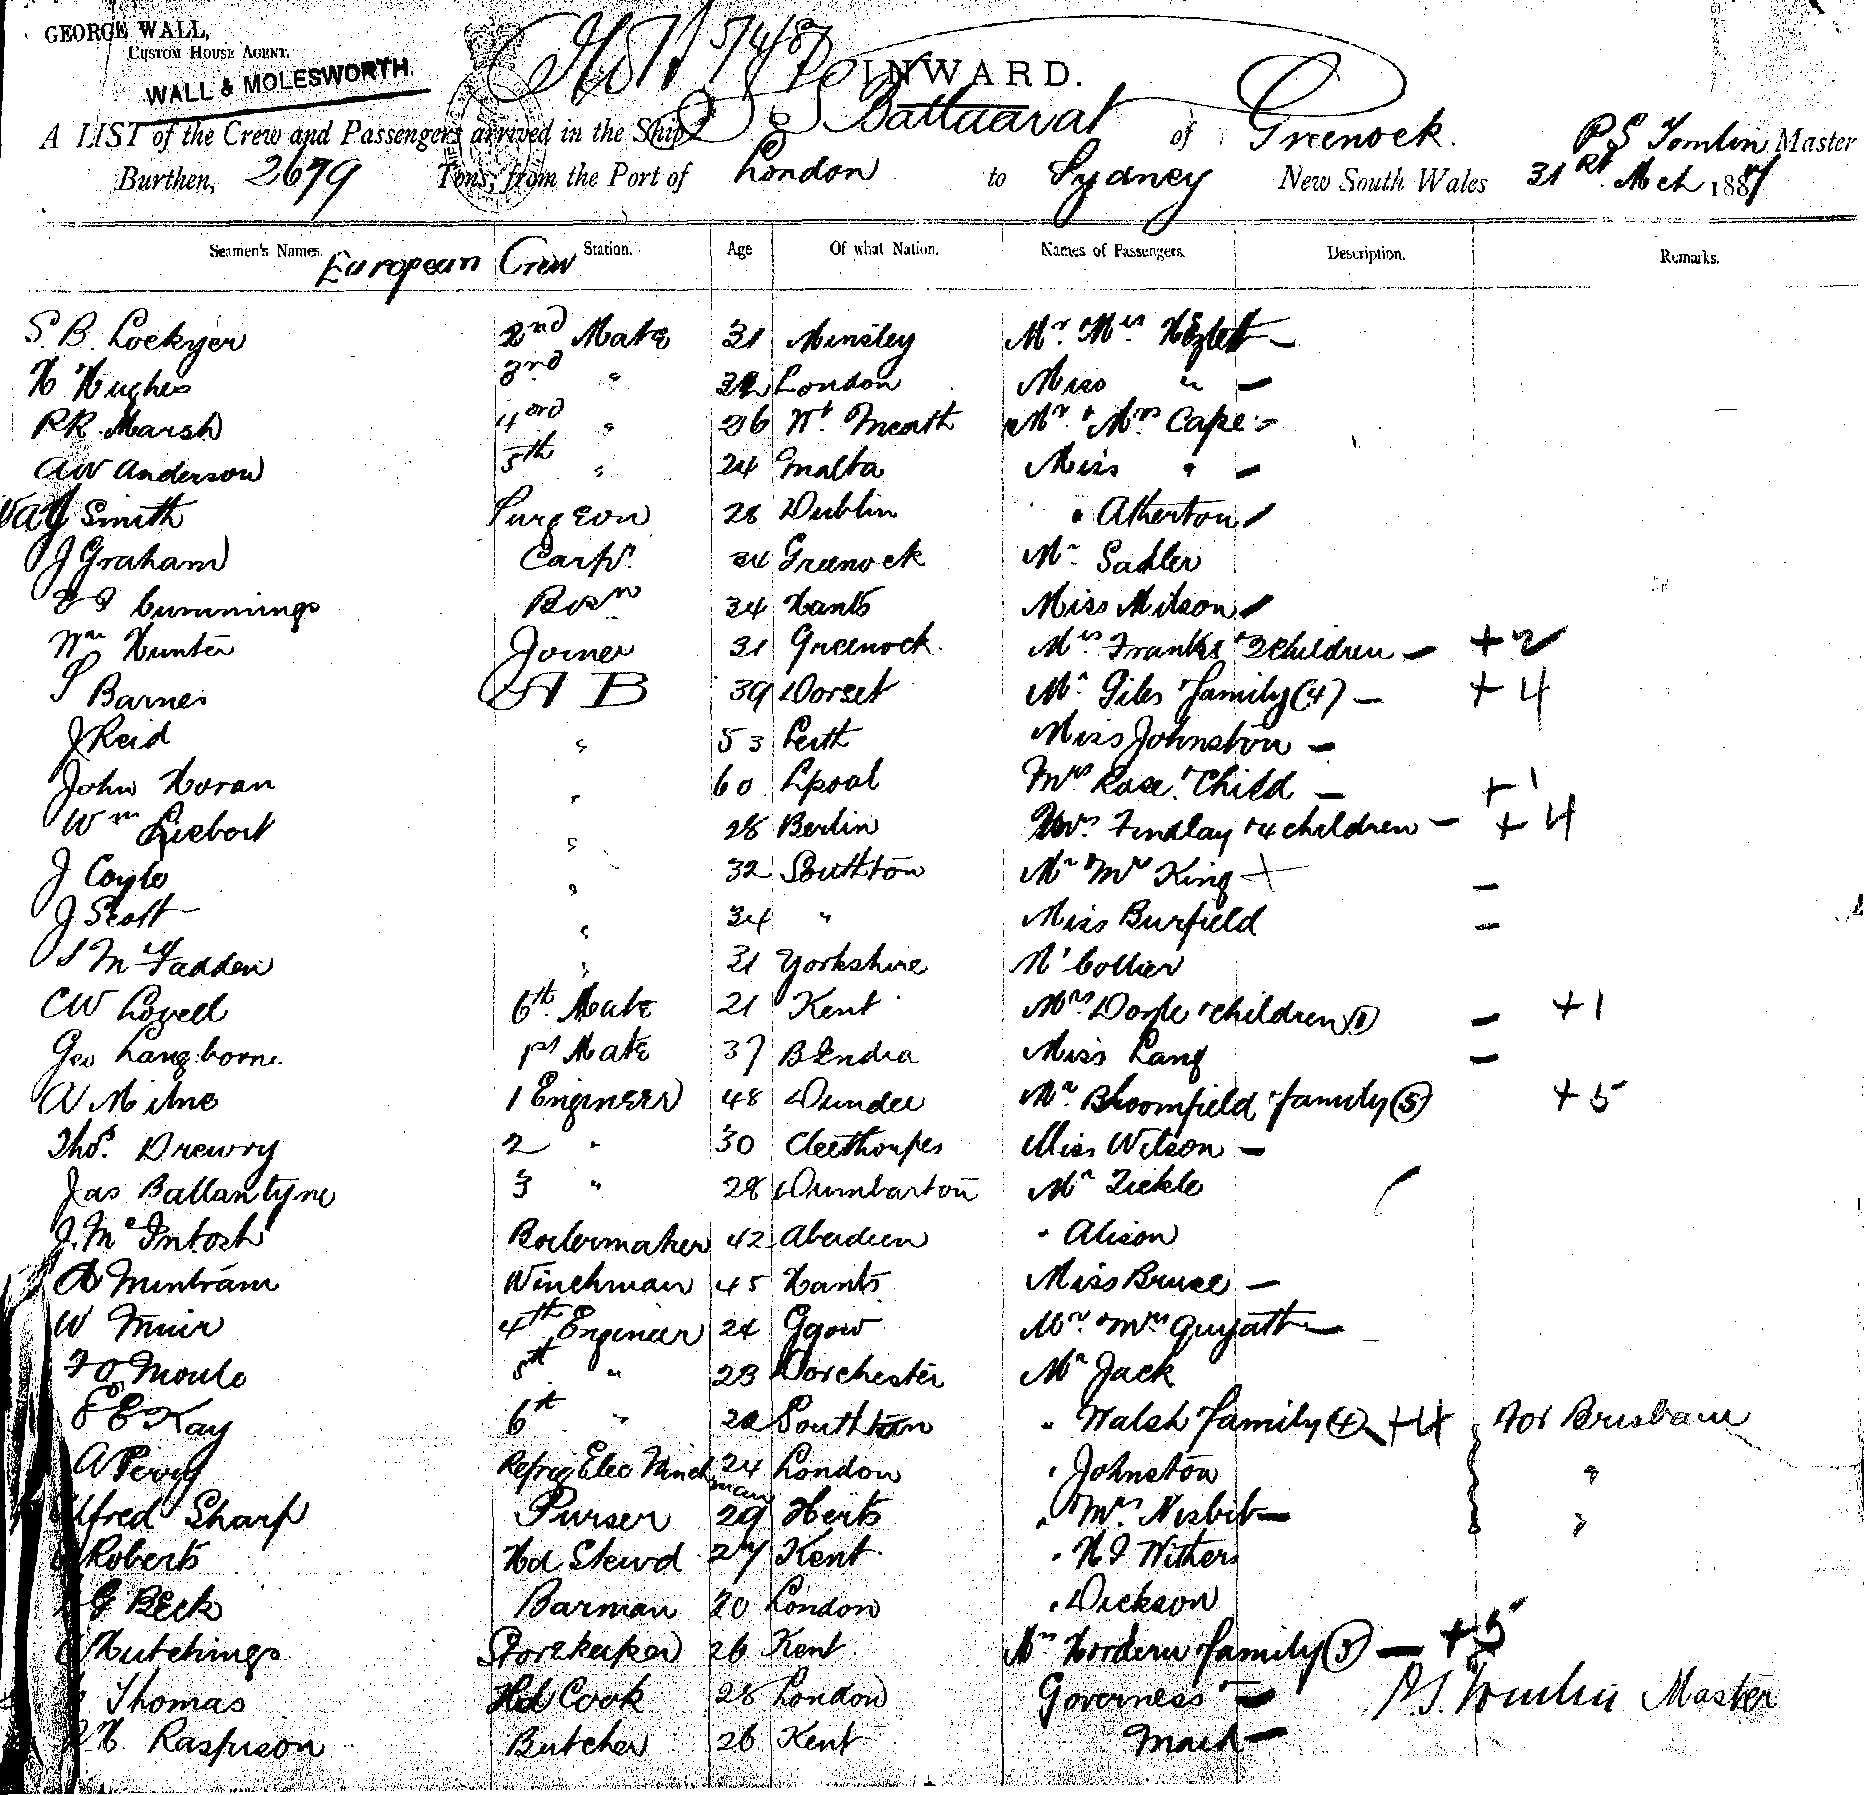 GEORGE WALL,
CUSTOM HOUSE AGENT.
WALL & MOLESWORTH.
INWARD.
A LIST of the Crew and Passengers arrived in the Ship S S Ballaarat of Greenock. P S Tomlin Master
Burthen, 2679 Tons, from the Port of London to Sydney New South Wales 31st Mch 1887
Seamen's Names. Station. Age Of what Nation. Names of Passengers. Description. Remarks.
European Crew
S. B. Lockyer 2nd Mate 31 Minsley Mr Mrs
H Hughes 3rd " London Miss " –
RR Marsh 4rd " 26 Wt Meath Mr & Mrs Cape –
AW Anderson 5th " 24 Malta Miss " –
Smith Surgeon 28 Dublin " Atherton
J Graham Carpr. 24 Greenock Mr Sadler
Cummings Bosn 34 Hants Miss Milson
Wm Hunter Joiner 31 Greenock. Mrs Franks & 2 children – +2
S Barnes A B 39 Dorset Mr Giles & family (4) – +4
J Reid " 53 Leith Miss Johnston –
John Horan " 60 Lpool Mrs Rose & Child – +1
Wm Liebert " 28 Berlin Mrs Findlay & 4 children – +4
J Coyle " 32 Southton Mr & Mrs King + –
J Scott " 34 " Miss Burfield –
S McFadden " 31 Yorkshire Mr Collier
CW Lovell 6th Mate 21 Kent Mrs Doyle & children (1) – +1
Geo Langborne 1st Mate 37 Miss Lang –
A Milne 1 Engineer 48 Dundee Mr Bloomfield & family (5) +5
Thos. Drewry 2 " 30 Cleethorpes Miss Wilson –
Jas Ballantyne 3 " 28 Dumbarton Mr Tickle
J. McIntosh Boilermaker 42 Aberdeen " Alison
A Mintram Winchman 45 Hants Miss Bruce –
W Muir 4th Engineer 24 Ggow Mr & Mrs Guyatt –
F O Moule 5th " 23 Dorchester Mr Jack
E Kay 6th " Southton " Walsh & family (4) +4 For Brisbane
A Perry Refrig Elec Winchman 24 London " Johnston "
Alfred Sharp Purser 29 Herts " & Mrs Nisbit – "
Roberts Hd Stewd 27 Kent " H J Withers
G Beck Barman 20 London " Dickson
Hutchings Storekeeper 26 Kent Mr Hordern & family (5) – +5
Thomas Hd Cook 28 London Governess & – P.S. Tomlin Master
H Raspison Butcher 26 Kent Maid –